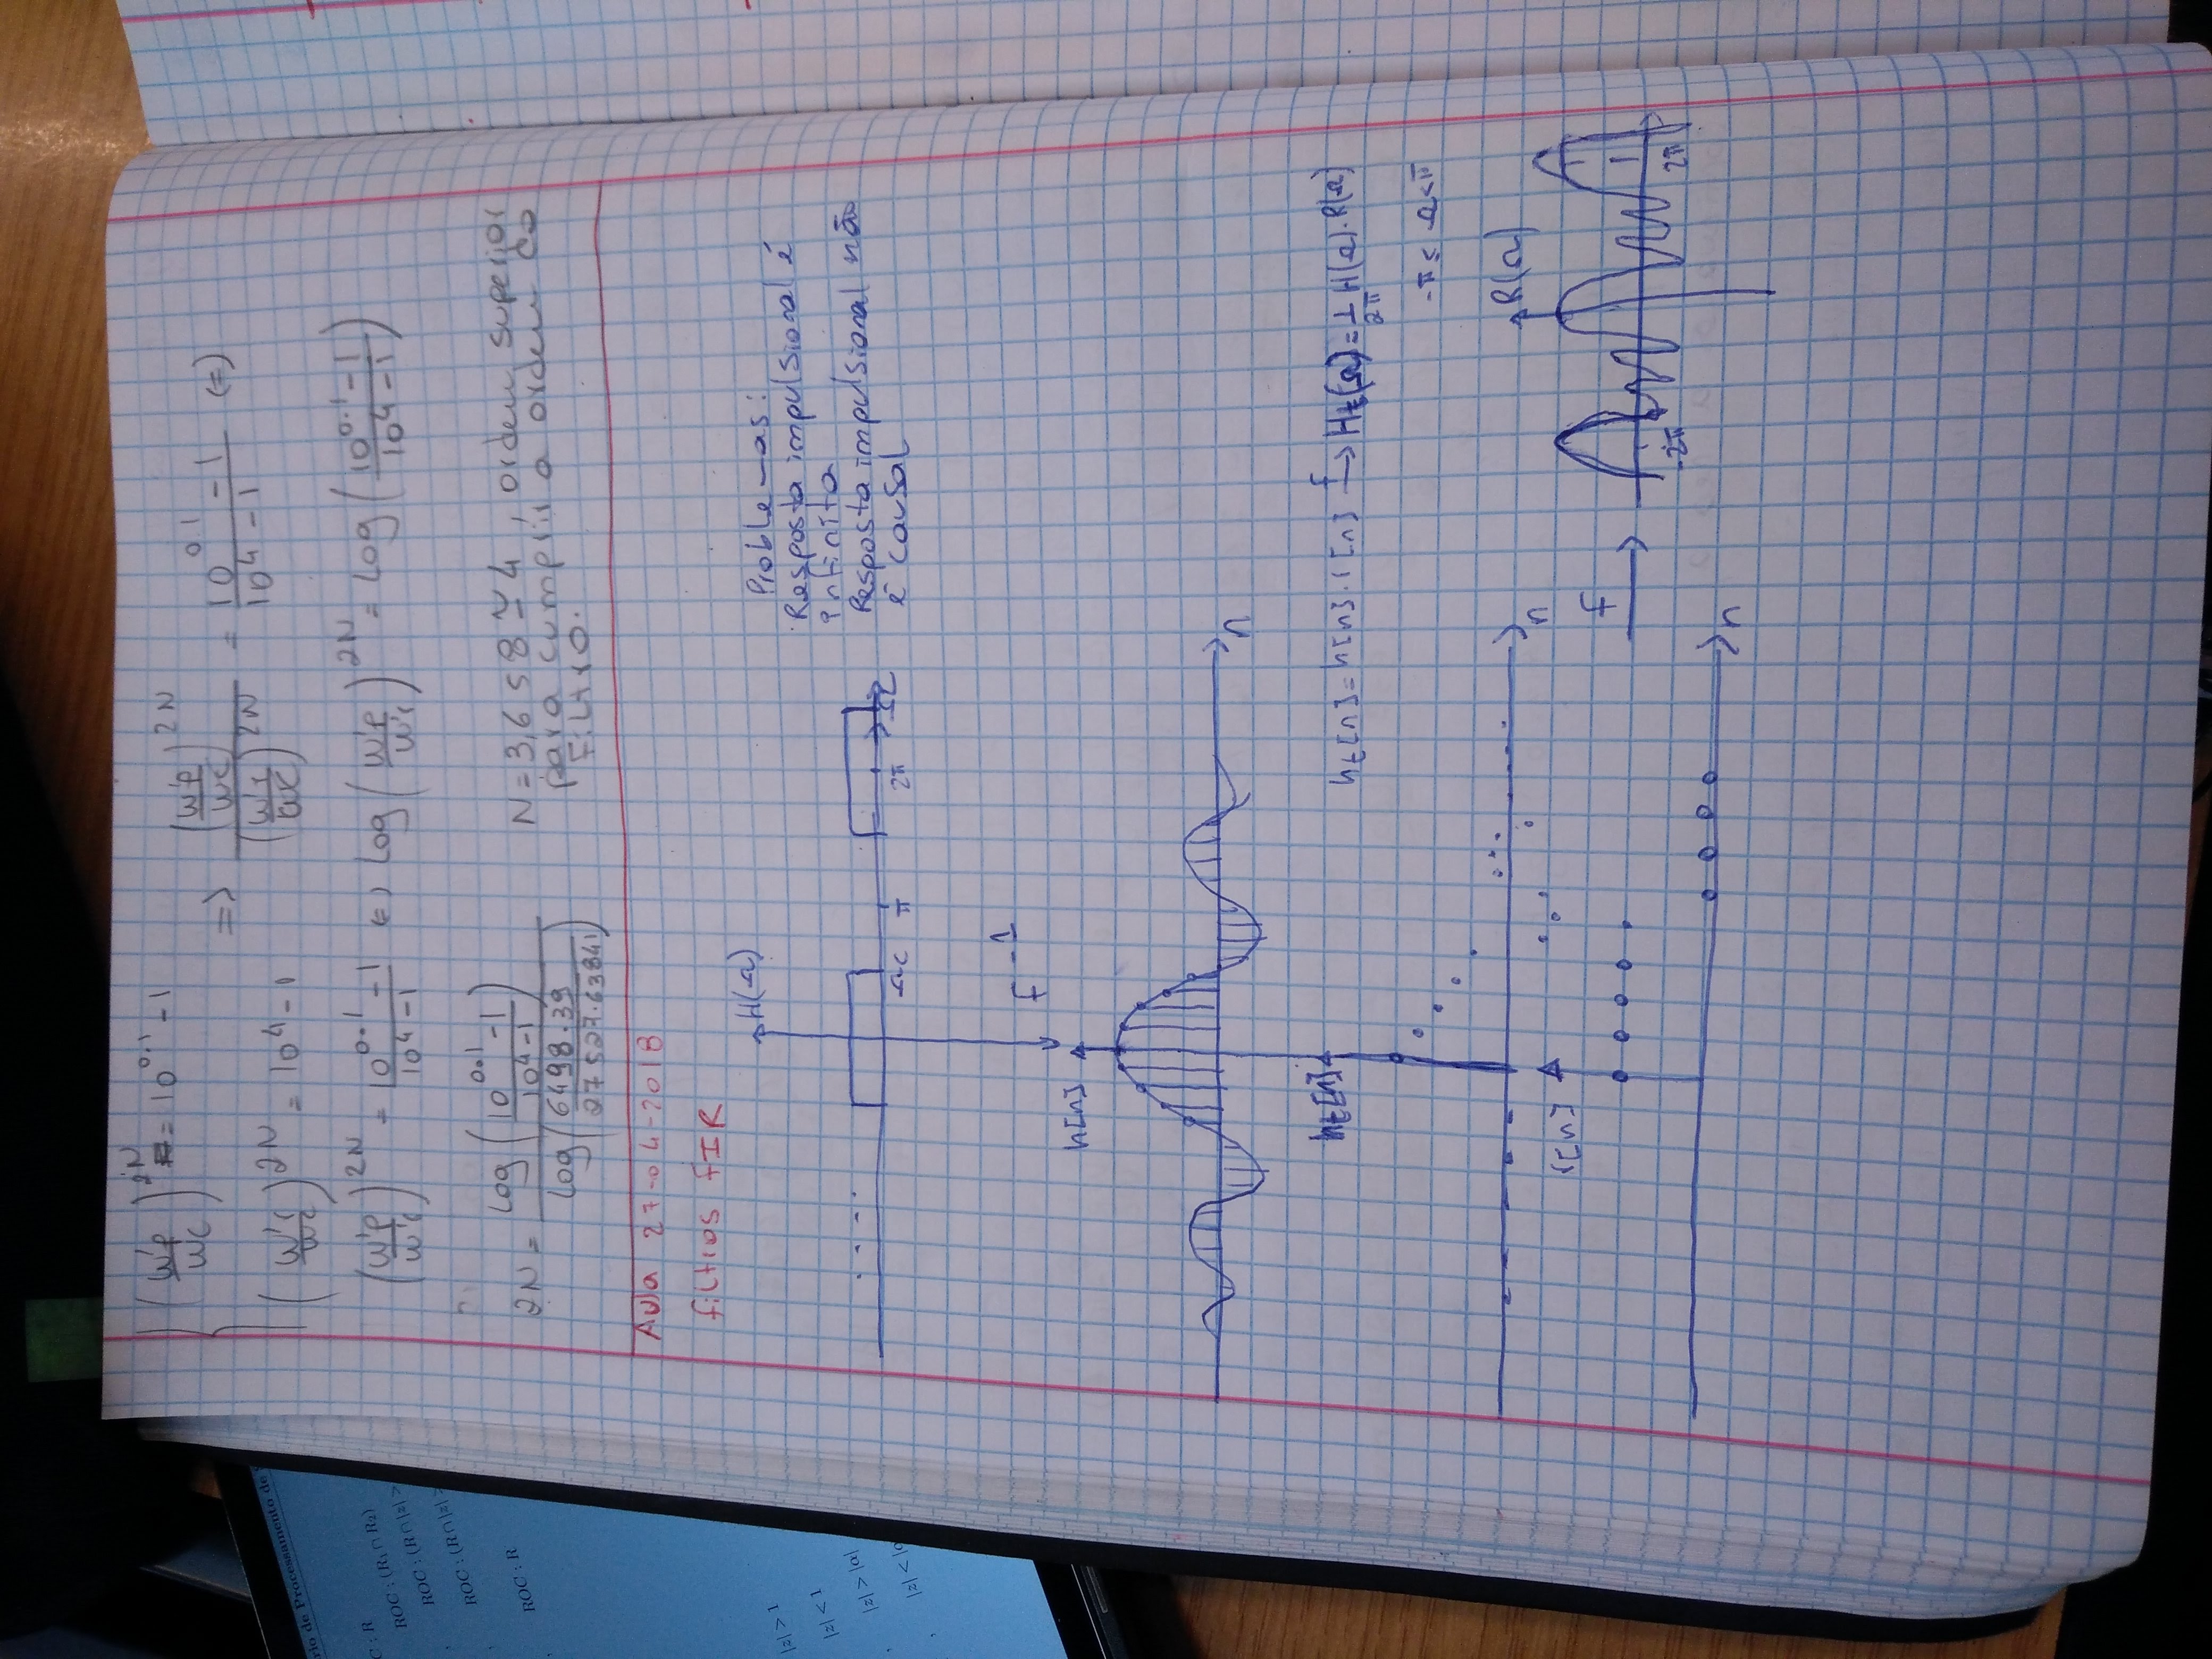 rio de Processamento de
C : R
ROC : (R₁ ∩ R₂)
ROC : (R ∩ |z| >
ROC : (R ∩ |z| >
ROC : R
|z| > 1
|z| < 1
|z| > |a|
|z| <
(w'p/wc)^2N = 10^0.1 - 1
=> (w'p/wc)^2N / (w'r/wc)^2N = (10^0.1 - 1)/(10^4 - 1) (=)
(w'r/wc)^2N = 10^4 - 1
(w'p/w'r)^2N = (10^0.1 - 1)/(10^4 - 1) (=) log (w'p/w'r)^2N = log ((10^0.1 - 1)/(10^4 - 1))
2N = log ((10^0.1 - 1)/(10^4 - 1)) / log (6498.39/27527.63841)
N = 3,658 ≃ 4 , ordem superior
para cumprir a ordem do
filtro.
Aula 27-04-2018
filtros FIR
H(Ω)
Ωc π 2π Ω
Problemas:
Resposta impulsional é
infinita
Resposta impulsional não
é causal
f^-1
h[n]
n
ht[n]
ht[n] = h[n] . r[n] f→ Ht(Ω) = 1/2π H(Ω) . R(Ω)
-π ≤ Ω < π
n
r[n]
n
f
R(Ω)
-2π 2π